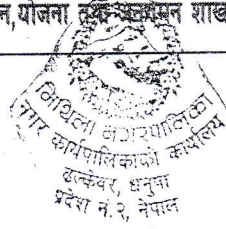 न,योजना तथा अनुगमन शाख
मिथिला नगरपालिका
नगर कार्यपालिकाको कार्यालय
ढल्केवर, धनुषा
प्रदेश नं.२, नेपाल